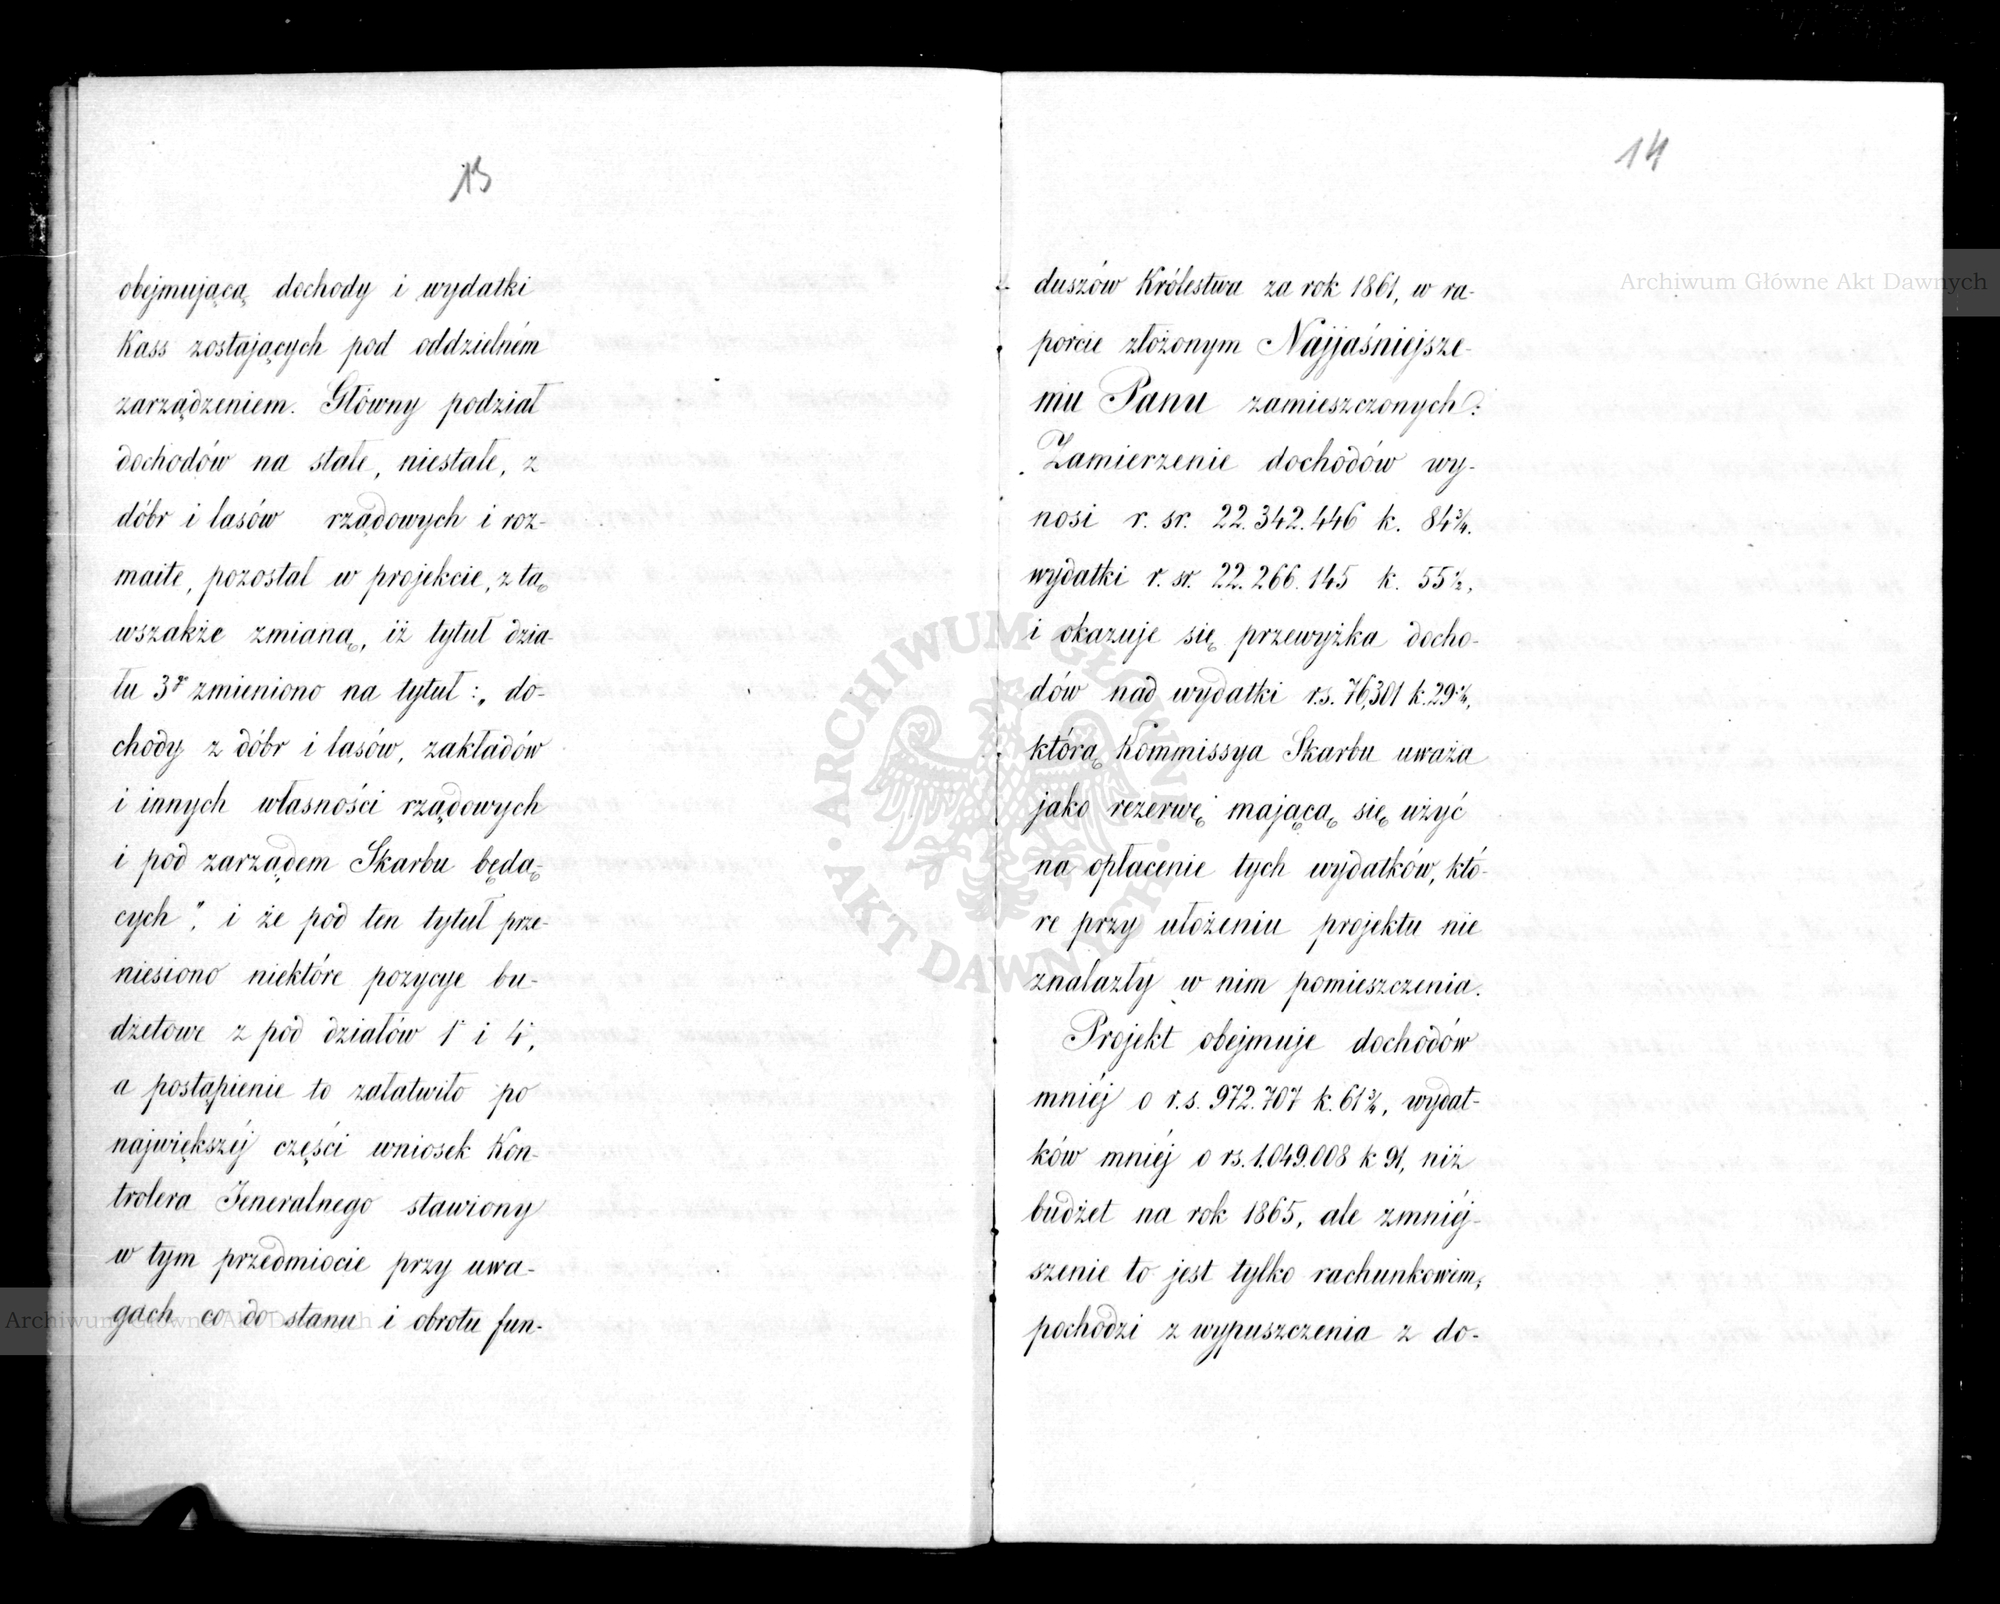 13
obejmującą dochody i wydatki
Kass zostających pod oddzielném
zarządzeniem. Główny podział
dochodów na stałe, niestałe, z
dóbr i lasów rządowych i roz-
maite, pozostał w projekcie, z tą
wszakże zmianą, iż tytuł dzia-
łu 3º zmieniono na tytuł: „do-
chody z dóbr i lasów, zakładów
i innych własności rządowych
i pod zarządem Skarbu będą-
cych", i że pod ten tytuł prze-
niesiono niektóre pozycye bu-
dżetowe z pod działów 1 i 4,
a postąpienie to załatwiło po
największéj części wniosek Kon-
trolera Jeneralnego stawiony
w tym przedmiocie przy uwa-
gach co do stanu i obrotu fun-
14
duszów Królestwa za rok 1861, w ra-
porcie złożonym Najjaśniejsze-
mu Panu zamieszczonych.
Zamierzenie dochodów wy-
nosi r. sr. 22.342.446 k. 84¾.
wydatki r. sr. 22.266.145 k. 55½,
i okazuje się przewyżka docho-
dów nad wydatki r.s. 76,301 k. 29¼,
którą Kommissya Skarbu uważa
jako rezerwę mającą się użyć
na opłacenie tych wydatków, któ-
re przy ułożeniu projektu nie
znalazły w nim pomieszczenia.
Projekt obejmuje dochodów
mniéj o r.s. 972.707 k. 61¾, wydat-
ków mniéj o rs. 1.049.008 k 91, niż
budżet na rok 1865, ale zmniéj-
szenie to jest tylko rachunkowém,
pochodzi z wypuszczenia z do-
Archiwum Główne Akt Dawnych
Archiwum Główne Akt Dawnych
· ARCHIWUM GŁÓWNE ·
AKT DAWNYCH